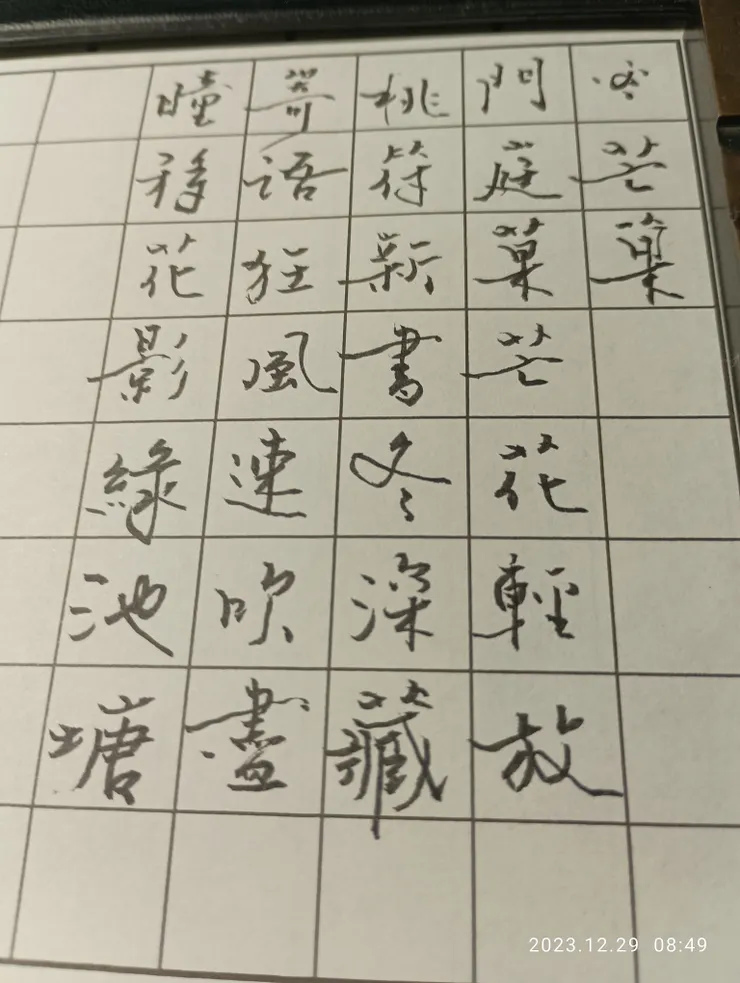 芒菓
門庭菓芒花輕放
桃符新書冬深藏
寄語狂風速吹盡
曈移花影綠池塘
2023.12.29 08:49